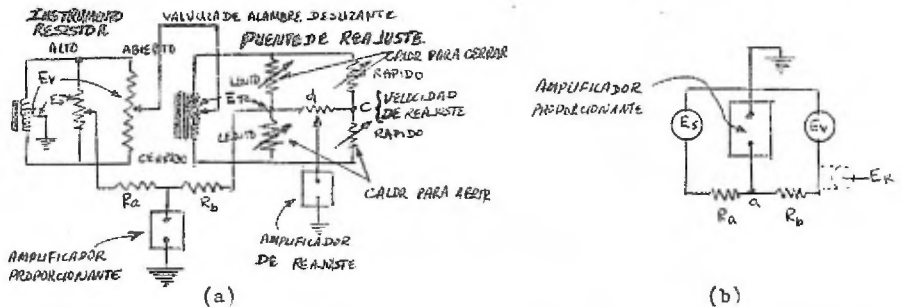 INSTRUMENTO
RESISTOR
VALVULA DE ALAMBRE DESLIZANTE
PUENTE DE REAJUSTE
ALTO
ABIERTO
CALOR PARA CERRAR
LENTO
RAPIDO
Ev
d
C
VELOCIDAD
DE REAJUSTE
LENTO
RAPIDO
CERRADO
CALOR PARA ABRIR
Ra
Rb
AMPLIFICADOR
PROPORCIONANTE
AMPLIFICADOR
DE REAJUSTE
(a)
AMPLIFICADOR
PROPORCIONANTE
Es
Ev
ER
Ra
a
Rb
(b)